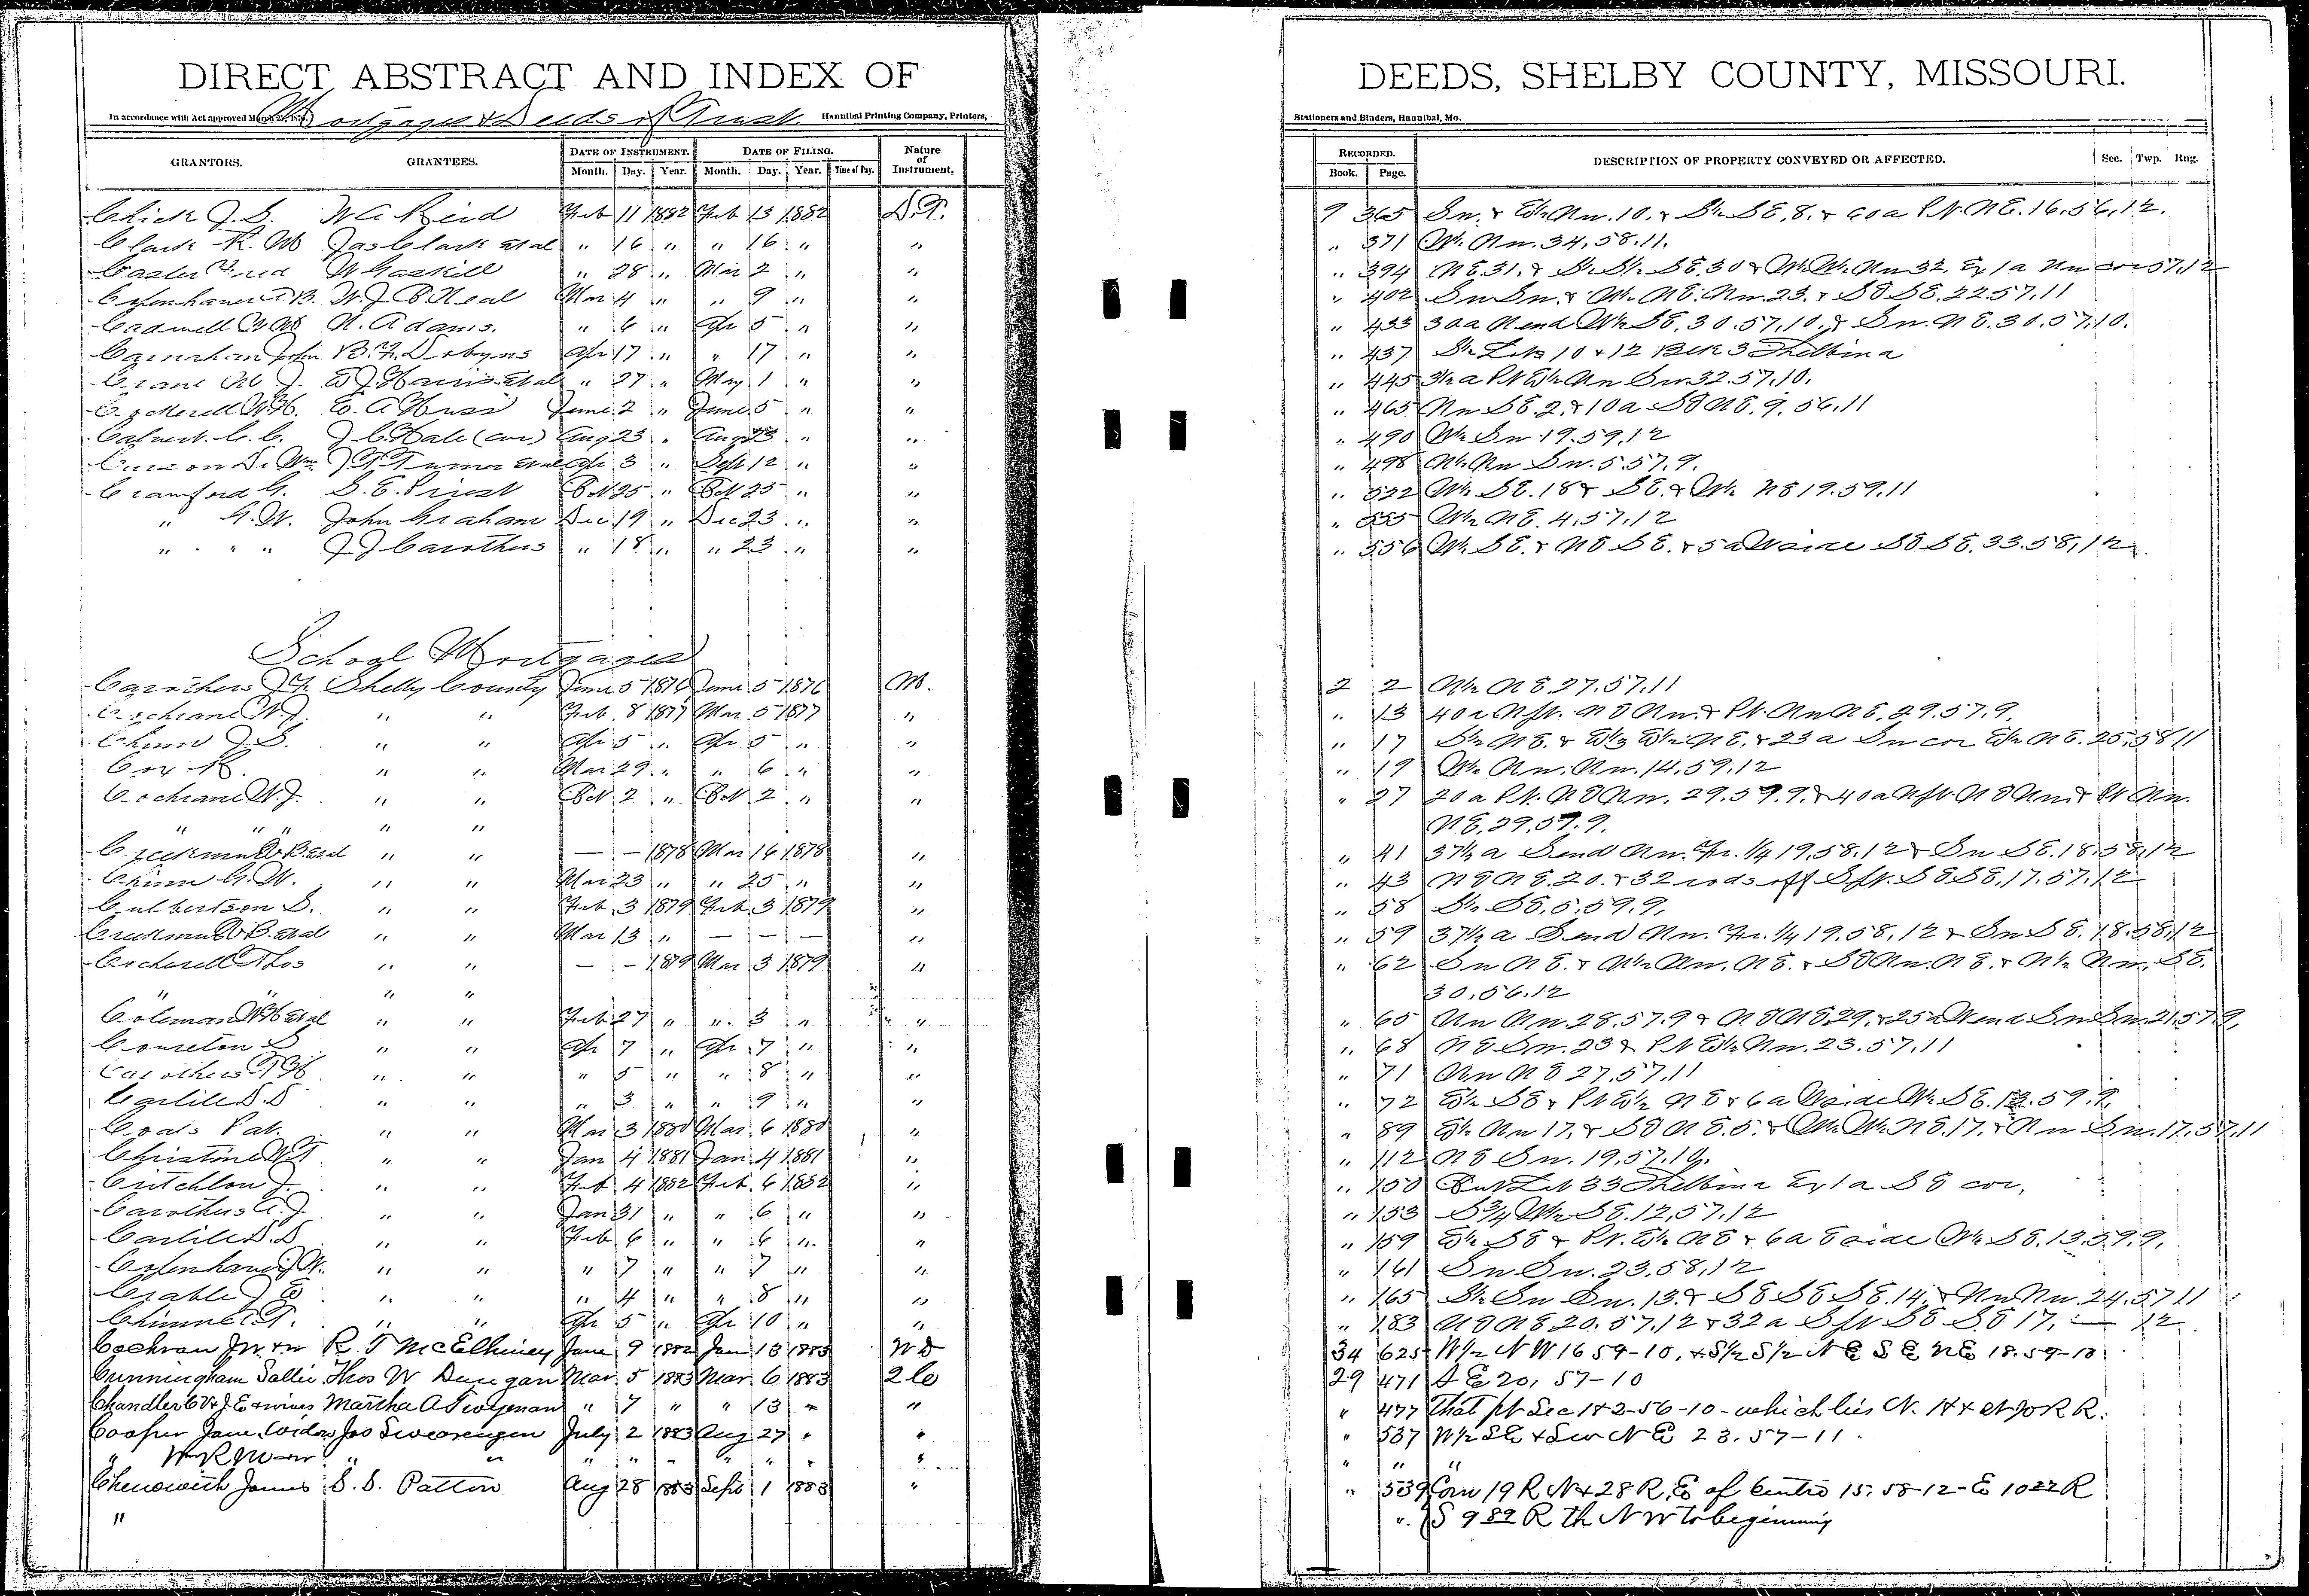 DIRECT ABSTRACT AND INDEX OF DEEDS, SHELBY COUNTY, MISSOURI.
Mortgages & Deeds of Trust
In accordance with Act approved March Hannibal Printing Company, Printers, Stationers and Binders, Hannibal, Mo.
GRANTORS. GRANTEES. DATE OF INSTRUMENT. Month. Day. Year. DATE OF FILING. Month. Day. Year. Time of Day. Nature of Instrument. RECORDED. Book. Page. DESCRIPTION OF PROPERTY CONVEYED OR AFFECTED. Sec. Twp. Rng.
Chick J. S. W A Reid Feb 11 1882 Feb 13 1882 D.T. 9 365 Sw. & E½ Nw. 10. & S½ SE. 8. & 60a Pt. NE. 16, 56, 12.
Clark R. M Jas Clark et al " 16 " " 16 " " " 371 W½ Nw. 34, 58. 11.
Fred W Gaskill " 28 " Mar 2 " " " 394 NE. 31. & S½ S½ SE. 30 & W½ W½ Nw 32. Ex 1a Nw cor 57, 12
Copenhaver T B. W. J. O'Neal Mar 4 " " 9 " " " 402 Sw Sw. & W½ NE. Nw. 23. & SE SE. 22 57, 11
Cadwell N. Adams. " 6 " Apr 5 " " " 433 30a N end W½ SE. 30. 57, 10, & Sw. NE. 30. 57, 10.
Carnahan John B. F. Dobyns Apr 17 " " 17 " " " 437 S½ Lots 10 & 12 Blk 3 Shelbina
Crane M J. E J Harris et al " 27 " May 1 " " " 445 3½ a Pt E½ Nw Sw. 32. 57, 10.
Cockerell W. H. E. A Huss June 2 " June 5 " " " 465 Nw SE. 2. & 10a SE NE. 9. 56, 11
Calvert. C. C. J C Hale (cur) Aug 23 " Aug 23 " " " 490 W½ Sw 19. 59, 12
Wm. J T Turner et al Apr 3 " Sept 12 " " " 498 N½ Nw Sw. 5. 57, 9.
Crawford G. S. E. Priest Oct 25 " Oct 25 " " " 522 W½ SE. 18 & SE. & W½ NE 19. 59, 11
" G. W. John Graham Dec 19 " Dec 23 " " " 555 W½ NE. 4, 57, 12
" " " J J Carothers " 18 " " 23 " " " 556 W½ SE. & NE SE. & 5a W side SE SE. 33. 58, 12
School Mortgages
Carothers J. F. Shelby County June 5 1876 June 5 1876 M. 2 2 N½ NE 27. 57. 11
Cochrane W. J. " " Feb. 8 1877 Mar. 5 1877 " " 13 40a N pt. NE Nw. & Pt. Nw NE. 29. 57. 9.
Chinn J. S. " " Apr 5 " Apr 5 " " " 17 S½ NE. & E½ NE. & 23a Sw cor E½ NE. 25, 58 11
Cox R. " " Mar 29 " " 6 " " " 19 W½ Nw. Nw. 14, 59. 12
Cochrane W. J. " " Oct 2 " Oct. 2 " " " 27 20a Pt. NE Nw. 29. 59. 9. & 40a N pt. NE Nw. & Pt Nw.
" " " " " NE. 29, 57. 9.
Creekmur B. et al " " — — 1878 Mar 16 1878 " " 41 37½ a S end Nw. Fr. ¼ 19, 58. 12 & Sw SE. 18. 58, 12
Chinn G. W. " " Mar 23 " " 25 " " " 43 NE NE. 20. & 32 rods off S pt. SE SE. 17. 57, 12
Culbertson S. " " Feb. 3 1879 Feb. 3 1879 " " 58 S½ SE. 5. 59. 9.
Creekmur B. et al " " Mar 13 " — — — " " 59 37½ a S end Nw. Fr. ¼ 19. 58, 12 & Sw SE. 18. 58, 12
Cockerell Thos " " — — 1879 Mar 3 1879 " " 62 Sw NE. & N½ Nw. NE. & SE Nw. NE. & N½ Nw. SE.
" " " " 30, 56, 12
Coleman W H et al " " Feb 27 " " 3 " " " 65 Nw Nw. 28. 57. 9 & NE NE 29. & 25a W end Sw Sw. 21, 57, 9.
S " " Apr 7 " Apr 7 " " " 68 NE Sw. 23 & Pt E½ Nw. 23. 57, 11
Carothers " " " 5 " " 8 " " " 71 Nw NE 27, 57, 11
Carlile D. D " " " 3 " " 9 " " " 72 E½ SE & Pt E½ NE & 6a side W½ SE. 13. 59. 9.
Pat. " " Mar 3 1880 Mar. 6 1880 " " 89 E½ Nw 17. & SE NE. 5. & W½ W½ NE. 17. & Nw Sw. 17. 57, 11
Christine W. T " " Jan 4 1881 Jan 4 1881 " " 112 NE Sw. 19. 57. 10.
Critchlow J. " " Feb. 4 1882 Feb 6 1882 " " 150 Out Lot 33 Shelbina Ex 1a SE cor.
Carothers A. J " " Jan 31 " " 6 " " " 153 S¾ W½ SE. 12, 57, 12
Carlile D. D " " Feb 6 " " 6 " " " 159 E½ SE & Pt. E½ NE & 6a E side W½ SE. 13. 59. 9.
Copenhaver J W. " " " 7 " " 7 " " " 161 Sw Sw. 23, 58, 12
Crable J E " " " 4 " " 8 " " " 165 S½ Sw Sw. 13. & SE SE SE. 14. & Nw Nw. 24. 57 11
" " Apr 5 " Apr 10 " " " 183 NE NE 20. 57, 12 & 32a S pt SE SE 17. — 12
Cochran J W & w R. T McElhiney June 9 1882 Jan 13 1883 W D 34 625 W½ NW 16 59-10, & S½ S½ NE SE NE 18. 59-10
Cunningham Sallie Thos W Dungan Mar 5 1883 Mar 6 1883 2 C 29 471 SE 20, 57-10
Chandler C V & J. E & wives Martha A Twyman " 7 " " 13 " " " 477 That pt Sec 1 & 2-56-10- which lies N. H & St Jo R R.
Cooper Jane, widow Jos Swearengen July 2 1883 Aug 27 " " " 537 W½ SE & Sw NE 23. 57-11
" Wm R " " " " " " " " " " " "
Chenowith James S. S. Patton Aug 28 1883 Sept 1 1883 " " 539 Com 19 R N & 28 R. E of Centre 15. 58-12-E 10 22 R
" " S 9 82 R th N W to beginning